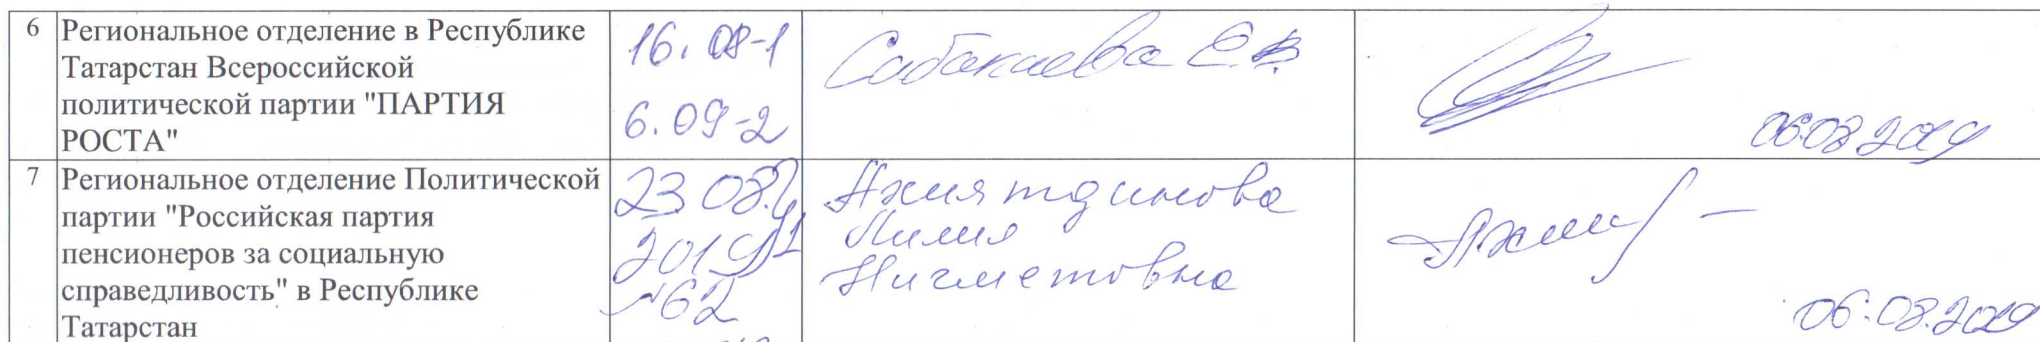 6
Региональное отделение в Республике
Татарстан Всероссийской
политической партии "ПАРТИЯ
РОСТА"
16.08-1
6.09-2
Сабакаева Е.В.
06.08.2019
7
Региональное отделение Политической
партии "Российская партия
пенсионеров за социальную
справедливость" в Республике
Татарстан
23.08.
2019
№62
Ахиятдинова
Лилия
Нигметовна
06.08.2019